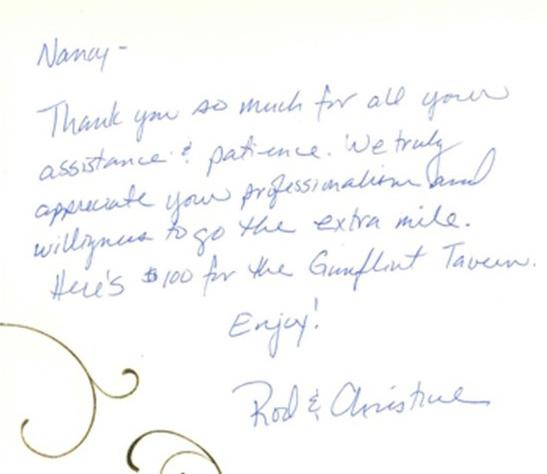 Nancy -
Thank you so much for all your
assistance & patience. We truly
appreciate your professionalism and
willigness to go the extra mile.
Here's $100 for the Gunflint Tavern.
Enjoy!
Rod & Christine